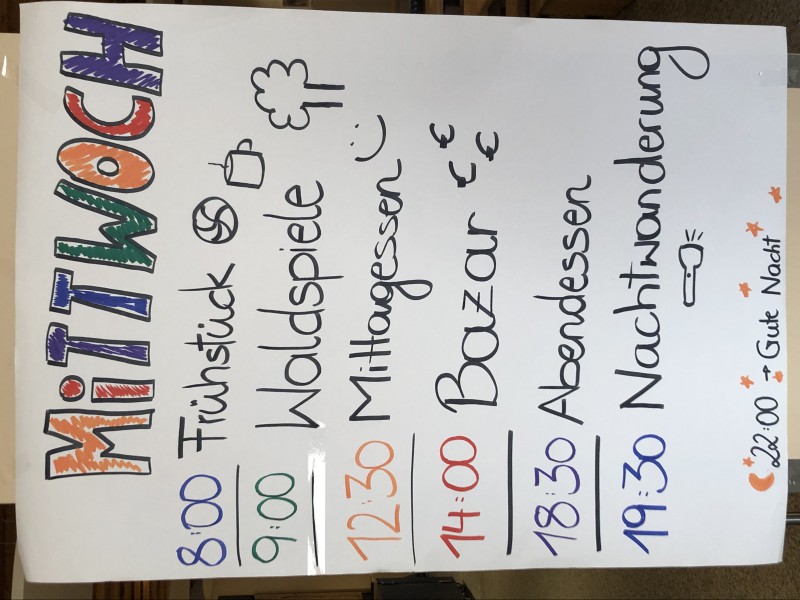 MiTTWOCH
8:00 Frühstück
9:00 Waldspiele
12:30 Mittagessen :)
14:00 Bazar € € €
18:30 Abendessen
19:30 Nachtwanderung
22:00 → Gute Nacht